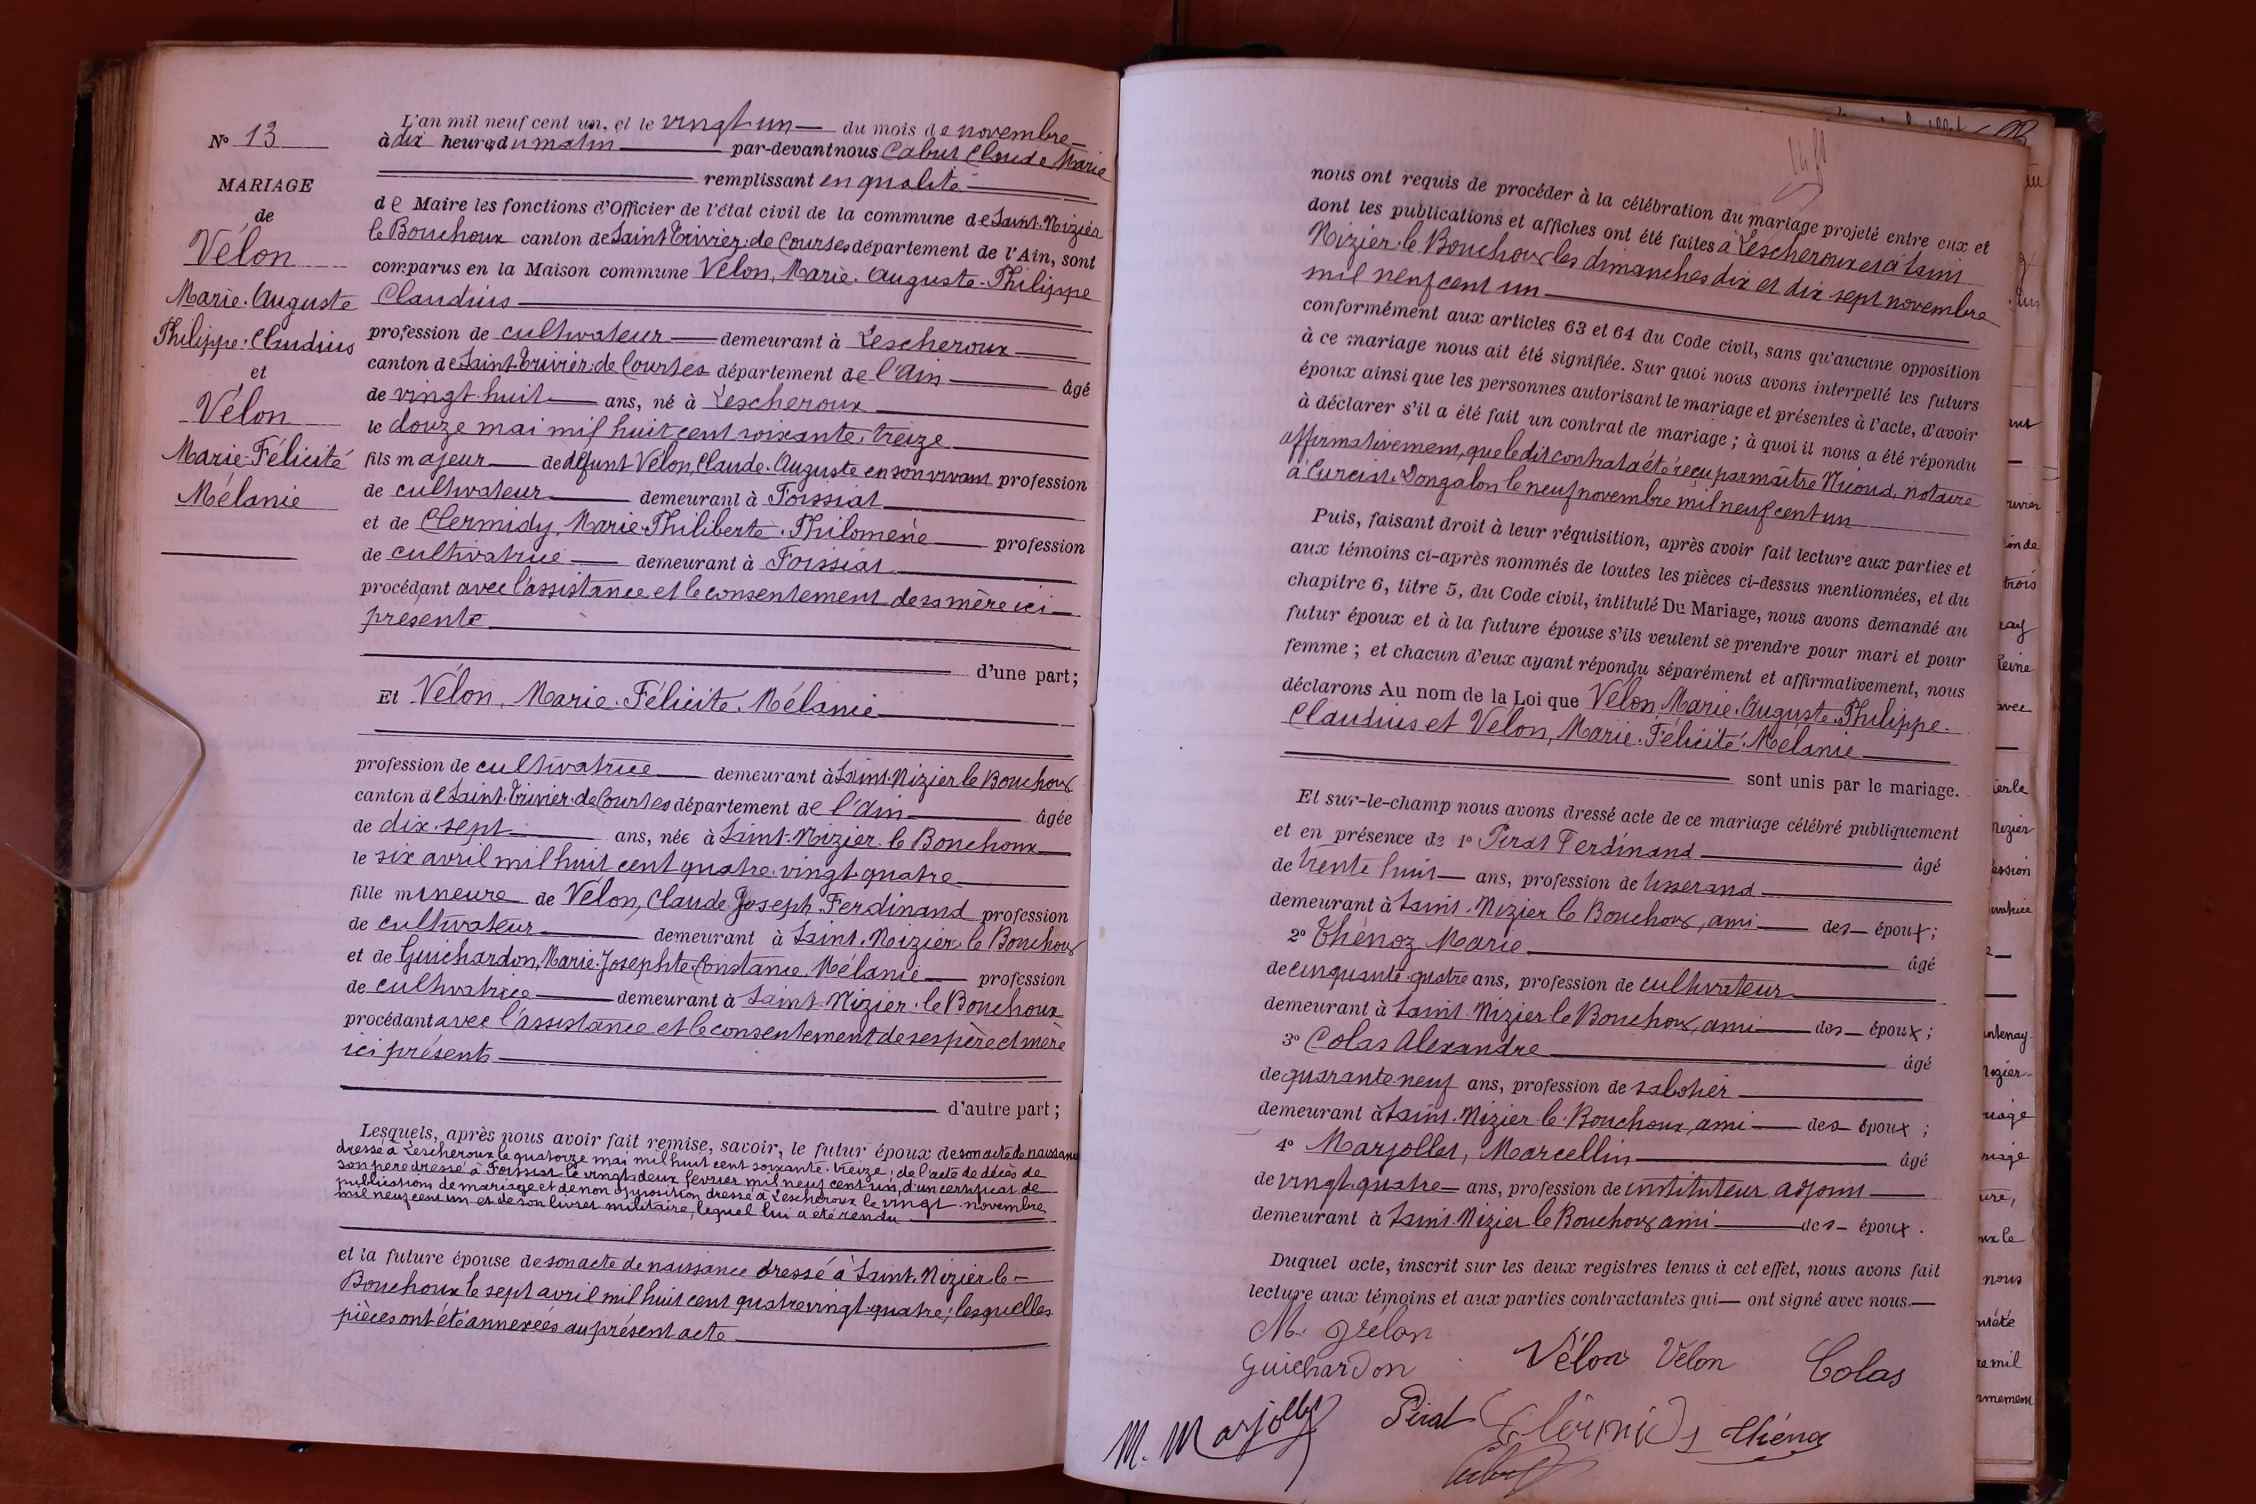 N° 13
MARIAGE
de
Vélon
Marie. Auguste
Philippe. Claudius
et
Vélon
Marie-Félicité
Mélanie
L'an mil neuf cent un, et le vingt un du mois de novembre
à dix heures du matin par-devant nous Cabut Claude Marie
remplissant en qualité
de Maire les fonctions d'Officier de l'état civil de la commune de Saint-Nizier
le Bouchoux canton de Saint Trivier de Courtes département de l'Ain, sont
comparus en la Maison commune Vélon, Marie. Auguste-Philippe
Claudius
profession de cultivateur demeurant à Lescheroux
canton de Saint-Trivier de Courtes département de l'Ain âgé
de vingt-huit ans, né à Lescheroux
le douze mai mil huit cent soixante-treize
fils majeur de défunt Vélon, Claude. Auguste en son vivant profession
de cultivateur demeurant à Foissiat
et de Clermidy, Marie-Philiberte. Philomène profession
de cultivatrice demeurant à Foissiat
procédant avec l'assistance et le consentement de sa mère ici
présente
d'une part;
Et Vélon, Marie. Félicité. Mélanie
profession de cultivatrice demeurant à Saint-Nizier le Bouchoux
canton de Saint-Trivier-de Courtes département de l'Ain âgée
de dix-sept ans, née à Saint-Nizier le Bouchoux
le six avril mil huit cent quatre-vingt-quatre
fille mineure de Vélon, Claude Joseph Ferdinand profession
de cultivateur demeurant à Saint-Nizier le Bouchoux
et de Guichardon, Marie-Josephte. Constance. Mélanie profession
de cultivatrice demeurant à Saint-Nizier le Bouchoux
procédant avec l'assistance et le consentement de ses père et mère
ici présents
d'autre part;
Lesquels, après nous avoir fait remise, savoir, le futur époux de son acte de naissance
dressé à Lescheroux le quatorze mai mil huit cent soixante-treize; de l'acte de décès de
son père dressé à Foissiat le vingt-deux février mil neuf cent un, d'un certificat de
publications de mariage et de non opposition dressé à Lescheroux le vingt novembre
mil neuf cent un et de son livret militaire, lequel lui a été rendu
et la future épouse de son acte de naissance dressé à Saint-Nizier-le-
Bouchoux le sept avril mil huit cent quatre vingt-quatre; lesquelles
pièces ont été annexées au présent acte
nous ont requis de procéder à la célébration du mariage projeté entre eux et
dont les publications et affiches ont été faites à Lescheroux et à Saint
Nizier-le Bouchoux les dimanches dix et dix sept novembre
mil neuf cent un
conformément aux articles 63 et 64 du Code civil, sans qu'aucune opposition
à ce mariage nous ait été signifiée. Sur quoi nous avons interpellé les futurs
époux ainsi que les personnes autorisant le mariage et présentes à l'acte, d'avoir
à déclarer s'il a été fait un contrat de mariage; à quoi il nous a été répondu
affirmativement, que le dit contrat a été reçu par maître Nicoud, notaire
à Curciat-Dongalon le neuf novembre mil neuf cent un
Puis, faisant droit à leur réquisition, après avoir fait lecture aux parties et
aux témoins ci-après nommés de toutes les pièces ci-dessus mentionnées, et du
chapitre 6, titre 5, du Code civil, intitulé Du Mariage, nous avons demandé au
futur époux et à la future épouse s'ils veulent se prendre pour mari et pour
femme; et chacun d'eux ayant répondu séparément et affirmativement, nous
déclarons Au nom de la Loi que Vélon, Marie. Auguste. Philippe.
Claudius et Vélon, Marie. Félicité. Mélanie
sont unis par le mariage.
Et sur-le-champ nous avons dressé acte de ce mariage célébré publiquement
et en présence de 1° Pirat Ferdinand âgé
de trente huit ans, profession de tisserand
demeurant à Saint-Nizier le Bouchoux, ami des époux;
2° Thénoz Marie âgé
de cinquante-quatre ans, profession de cultivateur
demeurant à Saint-Nizier le Bouchoux, ami des époux;
3° Colas Alexandre âgé
de quarante-neuf ans, profession de sabotier
demeurant à Saint-Nizier le Bouchoux, ami des époux;
4° Marjollet, Marcellin âgé
de vingt-quatre ans, profession de instituteur adjoint
demeurant à Saint-Nizier le Bouchoux ami des époux.
Duquel acte, inscrit sur les deux registres tenus à cet effet, nous avons fait
lecture aux témoins et aux parties contractantes qui ont signé avec nous.
Guichardon Vélon Vélon Colas
M. Marjollet Pirat Clermidy Thénoz